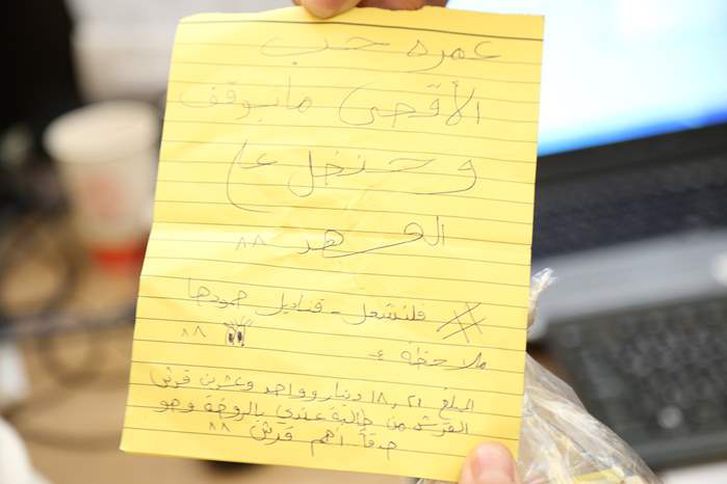 عمره حب
الأقصى مابوقف
وحنضل ع
العهد ٨٨
فلنشعل - قناديل صمودها
٨٨
ملاحظة :-
المبلغ ١٨,٢١ دينار وواحد وعشرين قرش
القرش من طالبة عندي بالروضة وهو
حدقاً أهم قرش ٨٨